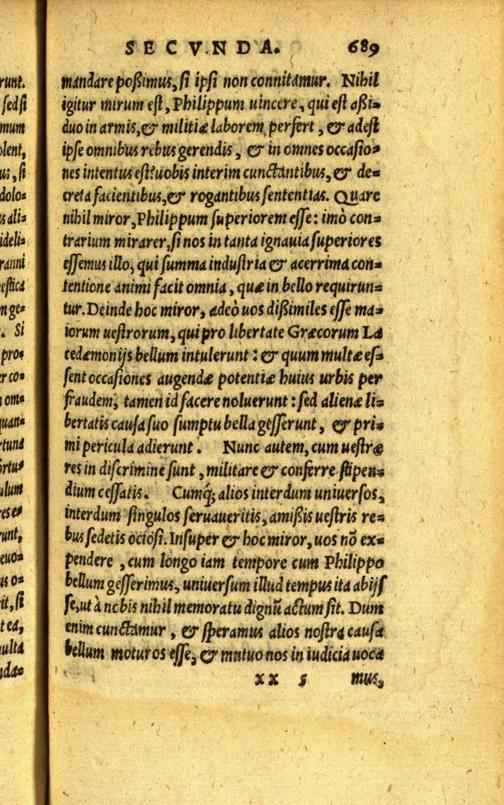 SECVNDA. 689
mandare poßimus, si ipsi non connitamur. Nihil
igitur mirum est, Philippum uincere, qui est aßi-
duo in armis, & militiæ laborem perfert, & adest
ipse omnibus rebus gerendis, & in omnes occasio-
nes intentus est: uobis interim cunctantibus, & de-
creta facientibus, & rogantibus sententias. Quare
nihil miror, Philippum superiorem esse: imò con-
trarium mirarer, si nos in tanta ignauia superiores
essemus illo, qui summa industria & acerrima con-
tentione animi facit omnia, quæ in bello requirun-
tur. Deinde hoc miror, adeò uos dißimiles esse ma-
iorum uestrorum, qui pro libertate Græcorum La
cedæmonijs bellum intulerunt: & quum multæ es-
sent occasiones augendæ potentiæ huius urbis per
fraudem, tamen id facere noluerunt: sed alienæ li-
bertatis causa suo sumptu bella gesserunt, & pri-
mi pericula adierunt. Nunc autem, cum uestræ
res in discrimine sunt, militare & conferre stipen-
dium cessatis. Cumq́; alios interdum uniuersos,
interdum singulos seruaueritis, amißis uestris re-
bus sedetis ociosi. Insuper & hoc miror, uos nõ ex-
pendere, cum longo iam tempore cum Philippo
bellum gesserimus, uniuersum illud tempus ita abijs
se, ut à nobis nihil memoratu dignũ actum sit. Dum
enim cunctamur, & speramus alios nostra causa
bellum moturos esse, & mutuo nos in iudicia uoca
xx 5 mus,
runt.
sed si
mum
olent,
us, si
dolo-
s ali-
ideli-
ranni
estica
m ge-
. Si
pro-
er co-
om-
quan-
rtuna
ortu-
ulum
runt,
euo-
us o-
rit, si
t ea,
multa
nda-